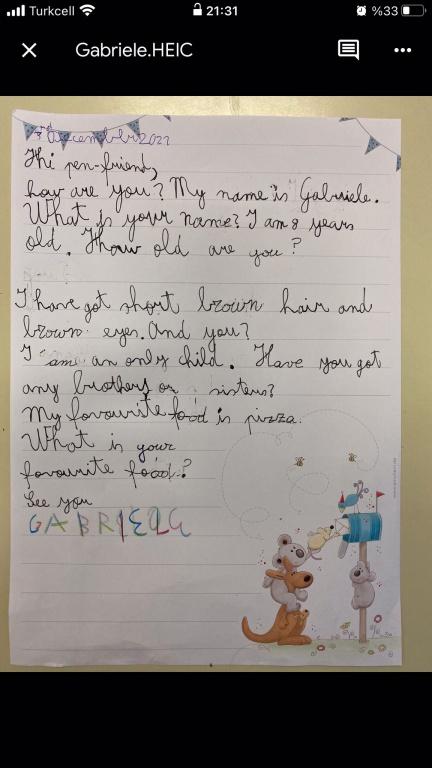 Turkcell 21:31 %33
Gabriele.HEIC
7th december 2022
Hi pen-friend,
how are you? My name is Gabriele.
What is your name? I am 8 years
old. How old are you?
I have got short brown hair and
brown eyes. And you?
I am an only child. Have you got
any brothers or sisters?
My favourite food is pizza.
What is your
favourite food?
See you
GABRIELE